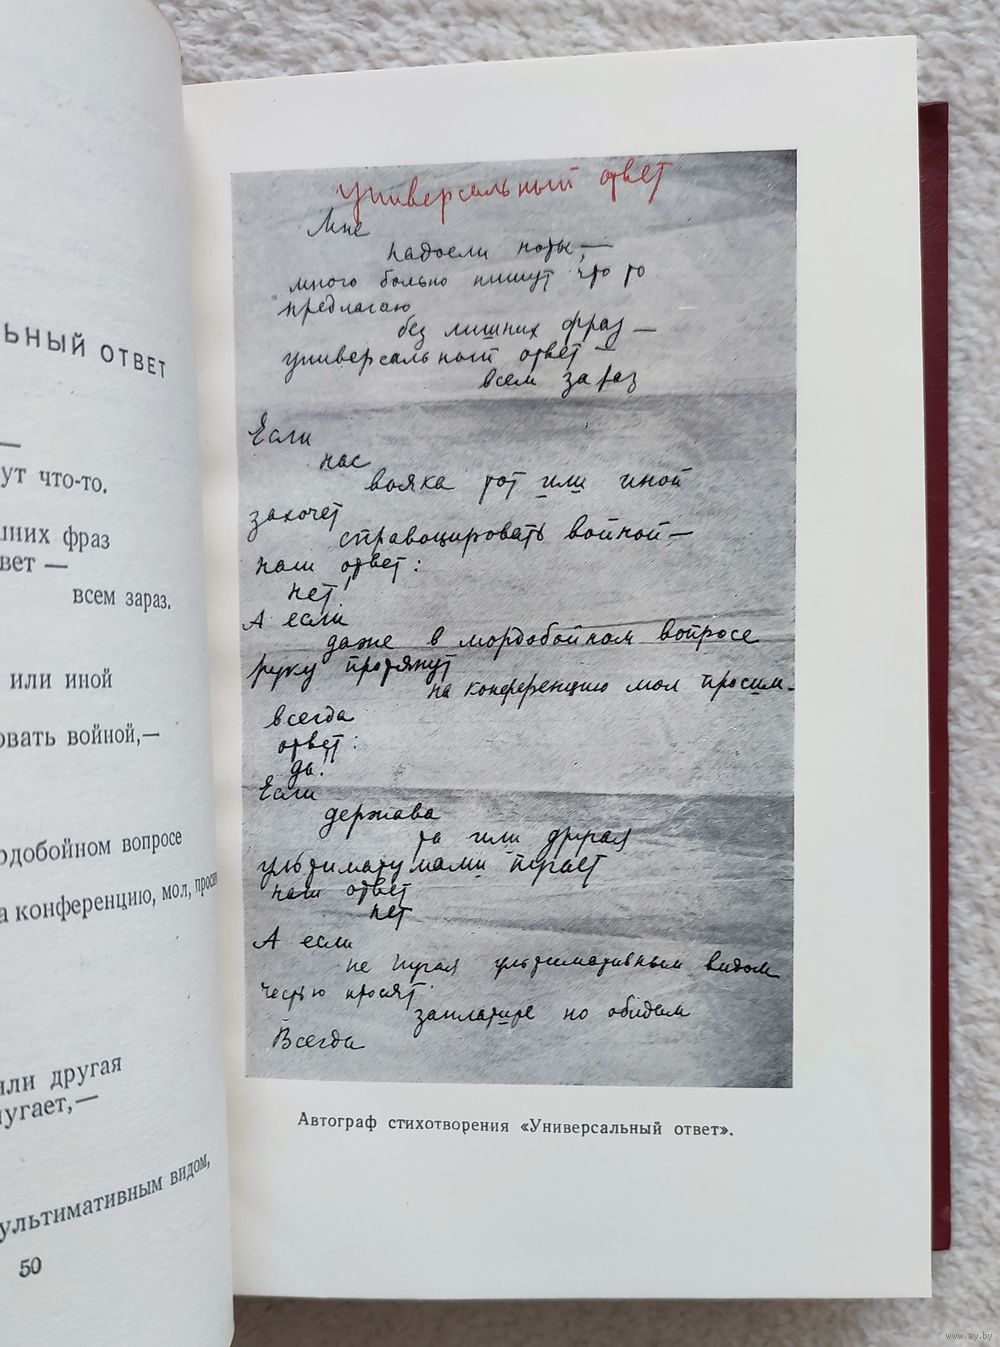 ЬНЫЙ ОТВЕТ
—
ут что-то.
шних фраз
вет —
всем зараз.
или иной
овать войной,—
рдобойном вопросе
а конференцию, мол, просим
или другая
пугает,—
ультимативным видом,
50
Универсальный ответ
Мне
надоели ноты, —
много больно пишут что то
предлагаю
без лишних фраз —
универсальный ответ —
всем зараз
Если
нас
вояка тот или иной
захочет
справоцировать войной —
наш ответ:
нет!
А если
даже в мордобойном вопросе
руку протянут
на конференцию мол просим —
всегда
ответ:
да!
Если
держава
та или другая
ультиматумами пугает
наш ответ
нет
А если
не пугая ультимативным видом
честью просят
заплатите по обидам
Всегда
Автограф стихотворения «Универсальный ответ».
www.ay.by